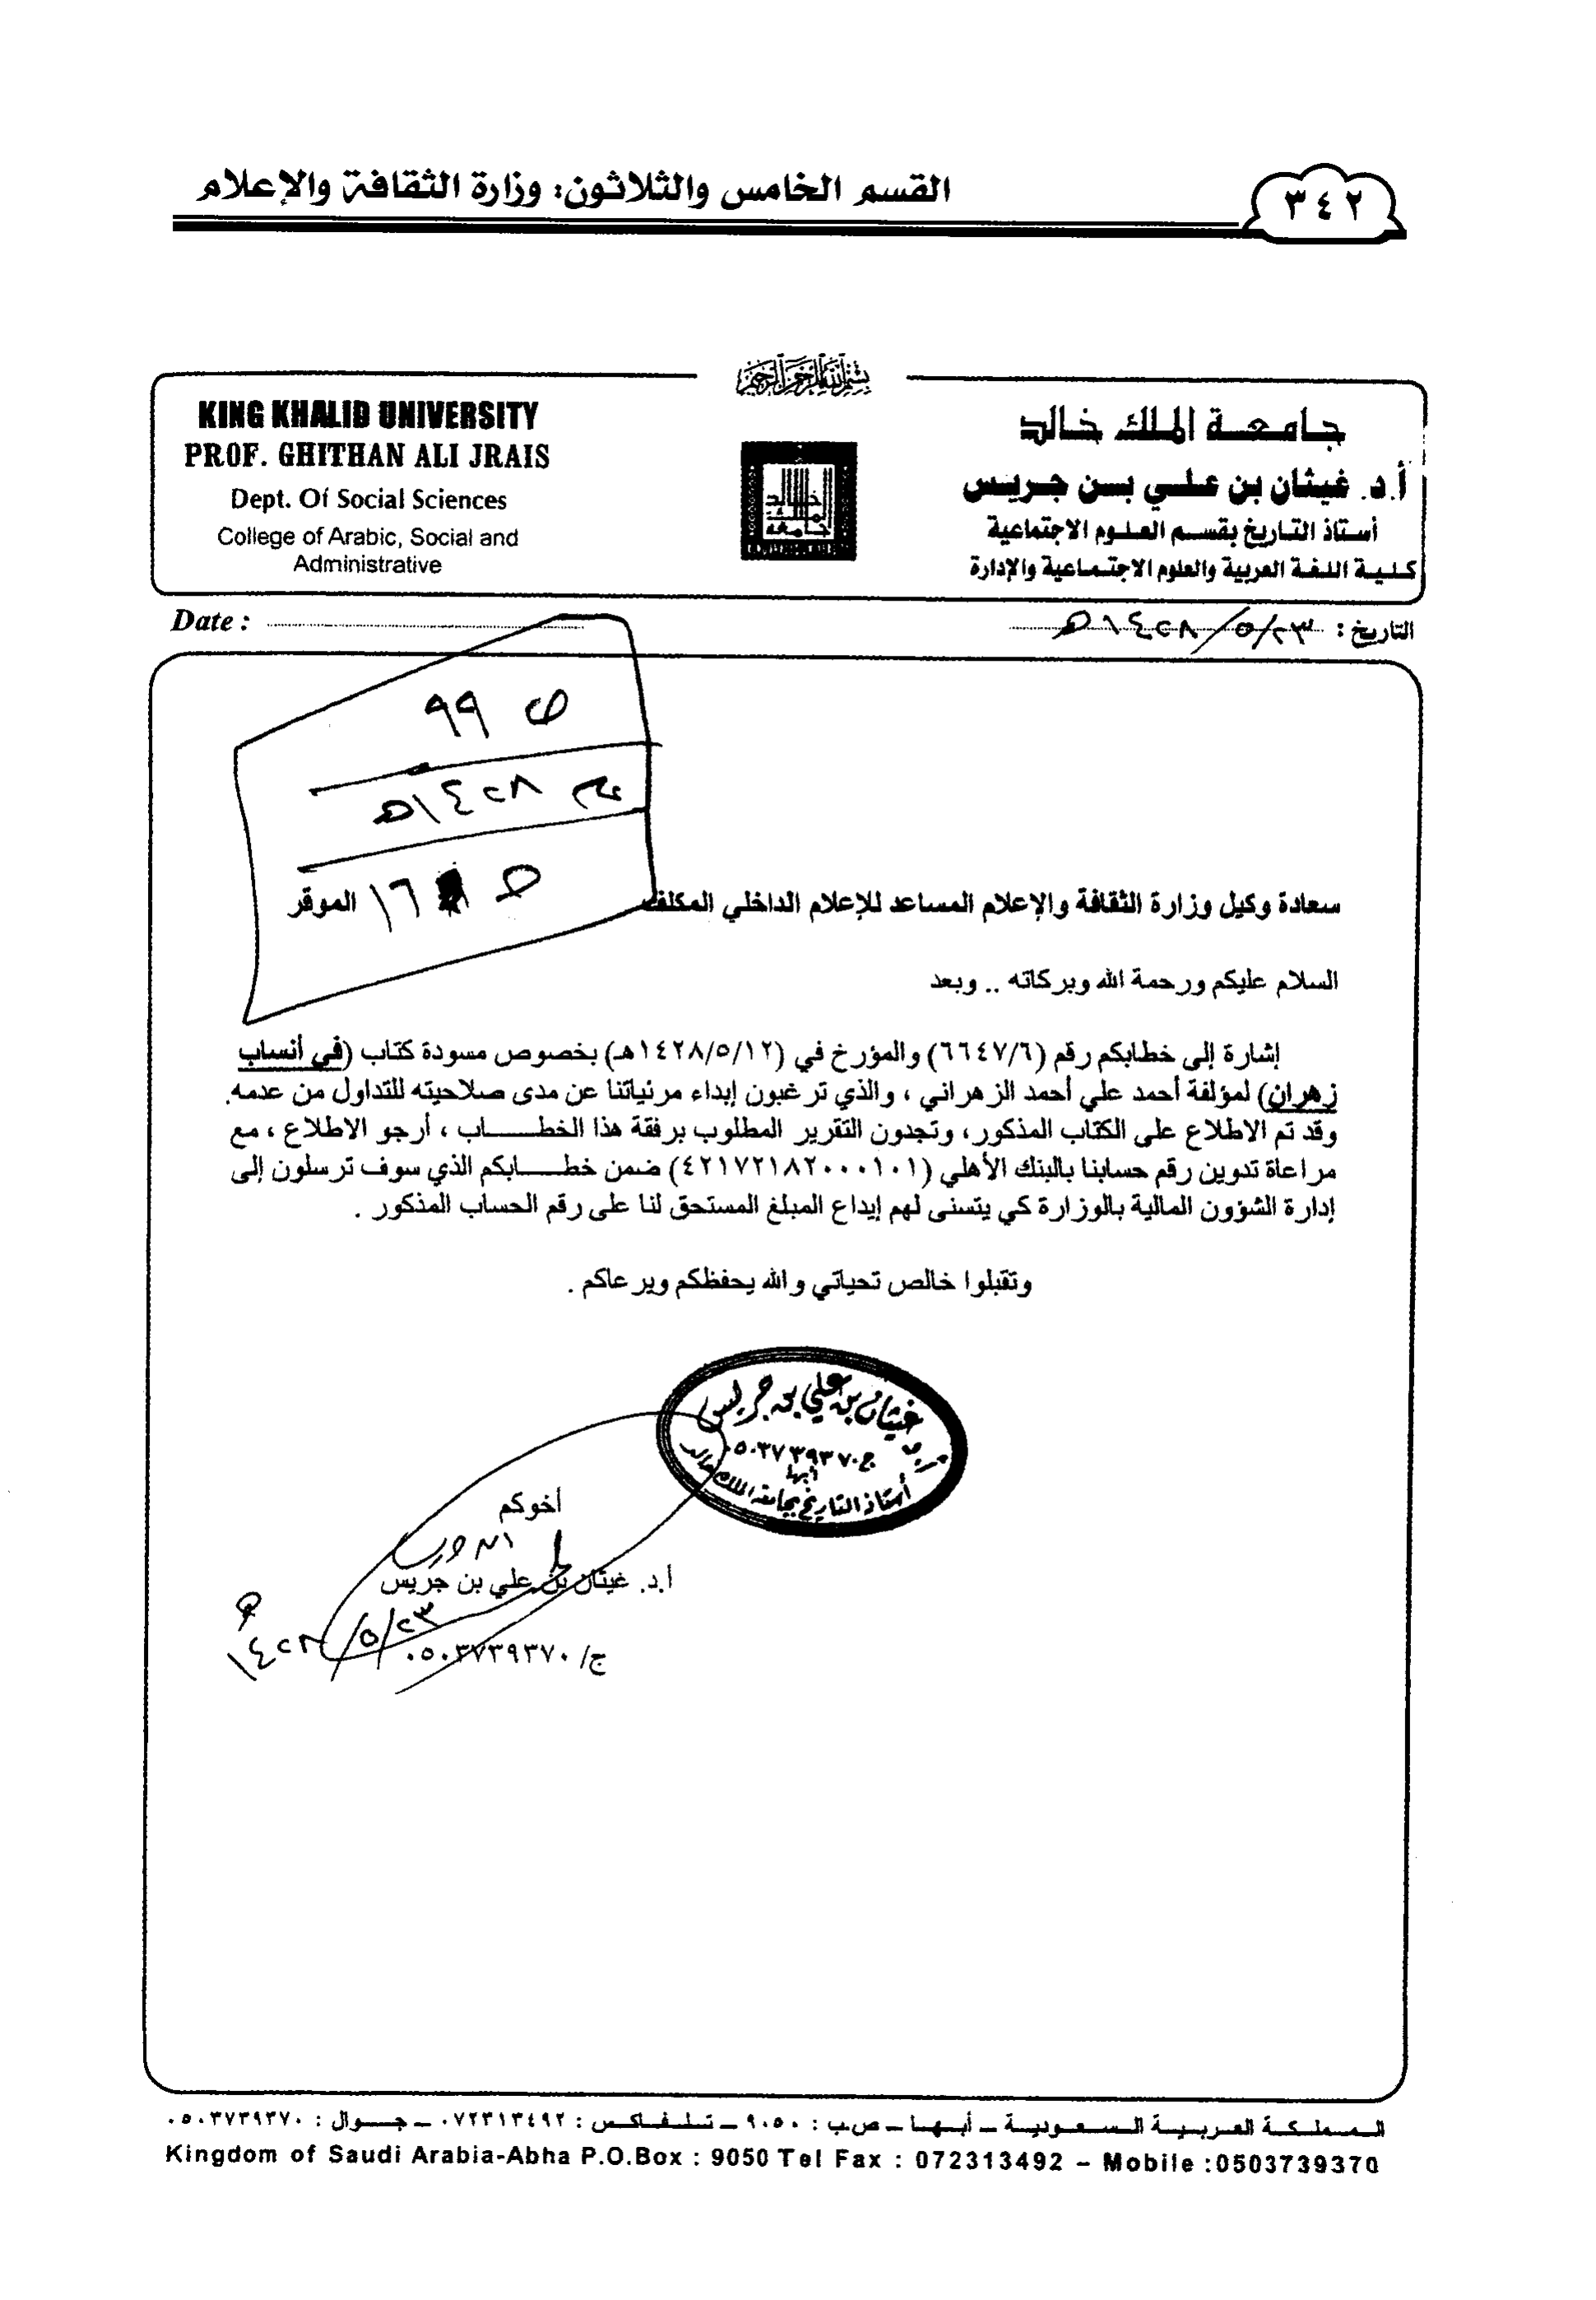 القسم الخامس والثلاثون: وزارة الثقافة والإعلام
٣٤٢
بسم الله الرحمن الرحيم
جامعة الملك خالد
أ.د. غيثان بن علي بن جريس
أستاذ التاريخ بقسم العلوم الاجتماعية
كلية اللغة العربية والعلوم الاجتماعية والإدارة
KING KHALID UNIVERSITY
PROF. GHITHAN ALI JRAIS
Dept. Of Social Sciences
College of Arabic, Social and
Administrative
التاريخ : ٢٣/٥/١٤٢٨هـ
Date :
ص ٩٩
عام ١٤٢٨هـ
ص ١٦
سعادة وكيل وزارة الثقافة والإعلام المساعد للإعلام الداخلي المكلف الموقر
السلام عليكم ورحمة الله وبركاته .. وبعد
إشارة إلى خطابكم رقم (٦٦٤٧/٦) والمؤرخ في (١٤٢٨/٥/١٢هـ) بخصوص مسودة كتاب (في أنساب
زهران) لمؤلفة أحمد علي أحمد الزهراني ، والذي ترغبون إبداء مرئياتنا عن مدى صلاحيته للتداول من عدمه.
وقد تم الاطلاع على الكتاب المذكور، وتجدون التقرير المطلوب برفقة هذا الخطاب ، أرجو الاطلاع ، مع
مراعاة تدوين رقم حسابنا بالبنك الأهلي (٤٢١٧٢١٨٢٠٠٠١٠١) ضمن خطابكم الذي سوف ترسلون إلى
إدارة الشؤون المالية بالوزارة كي يتسنى لهم إيداع المبلغ المستحق لنا على رقم الحساب المذكور .
وتقبلوا خالص تحياتي والله يحفظكم ويرعاكم .
غيثان بن علي بن جريس
ج ٠٥٠٣٧٣٩٣٧٠
أبها
أستاذ التاريخ بجامعة الملك خالد
أخوكم
أ.د. غيثان بن علي بن جريس
٢٣/٥/١٤٢٨هـ
ج/ ٠٥٠٣٧٣٩٣٧٠
المملكة العربية السعودية – أبها – ص.ب : ٩٠٥٠ – تلفاكس : ٠٧٢٣١٣٤٩٢ – جوال : ٠٥٠٣٧٣٩٣٧٠
Kingdom of Saudi Arabia-Abha P.O.Box : 9050 Tel Fax : 072313492 – Mobile :0503739370